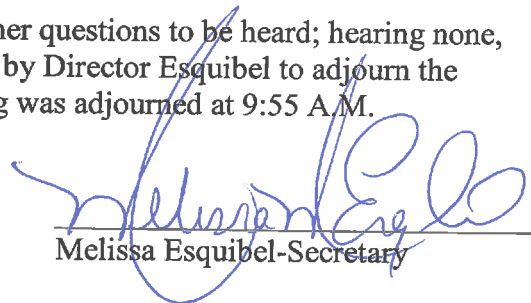 ner questions to be heard; hearing none,
by Director Esquibel to adjourn the
g was adjourned at 9:55 A.M.
Melissa Esquibel-Secretary